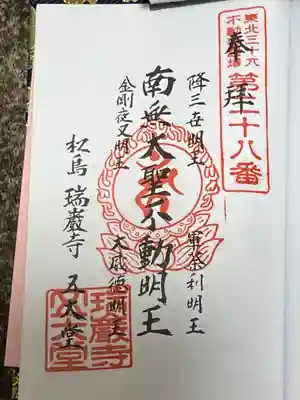 東北三十六
不動尊霊場
第二十八番
奉拝
降三世明王
軍荼利明王
南無大聖不動明王
金剛夜叉明王
大威徳明王
松島 瑞巖寺 五大堂
瑞巖寺
五大堂